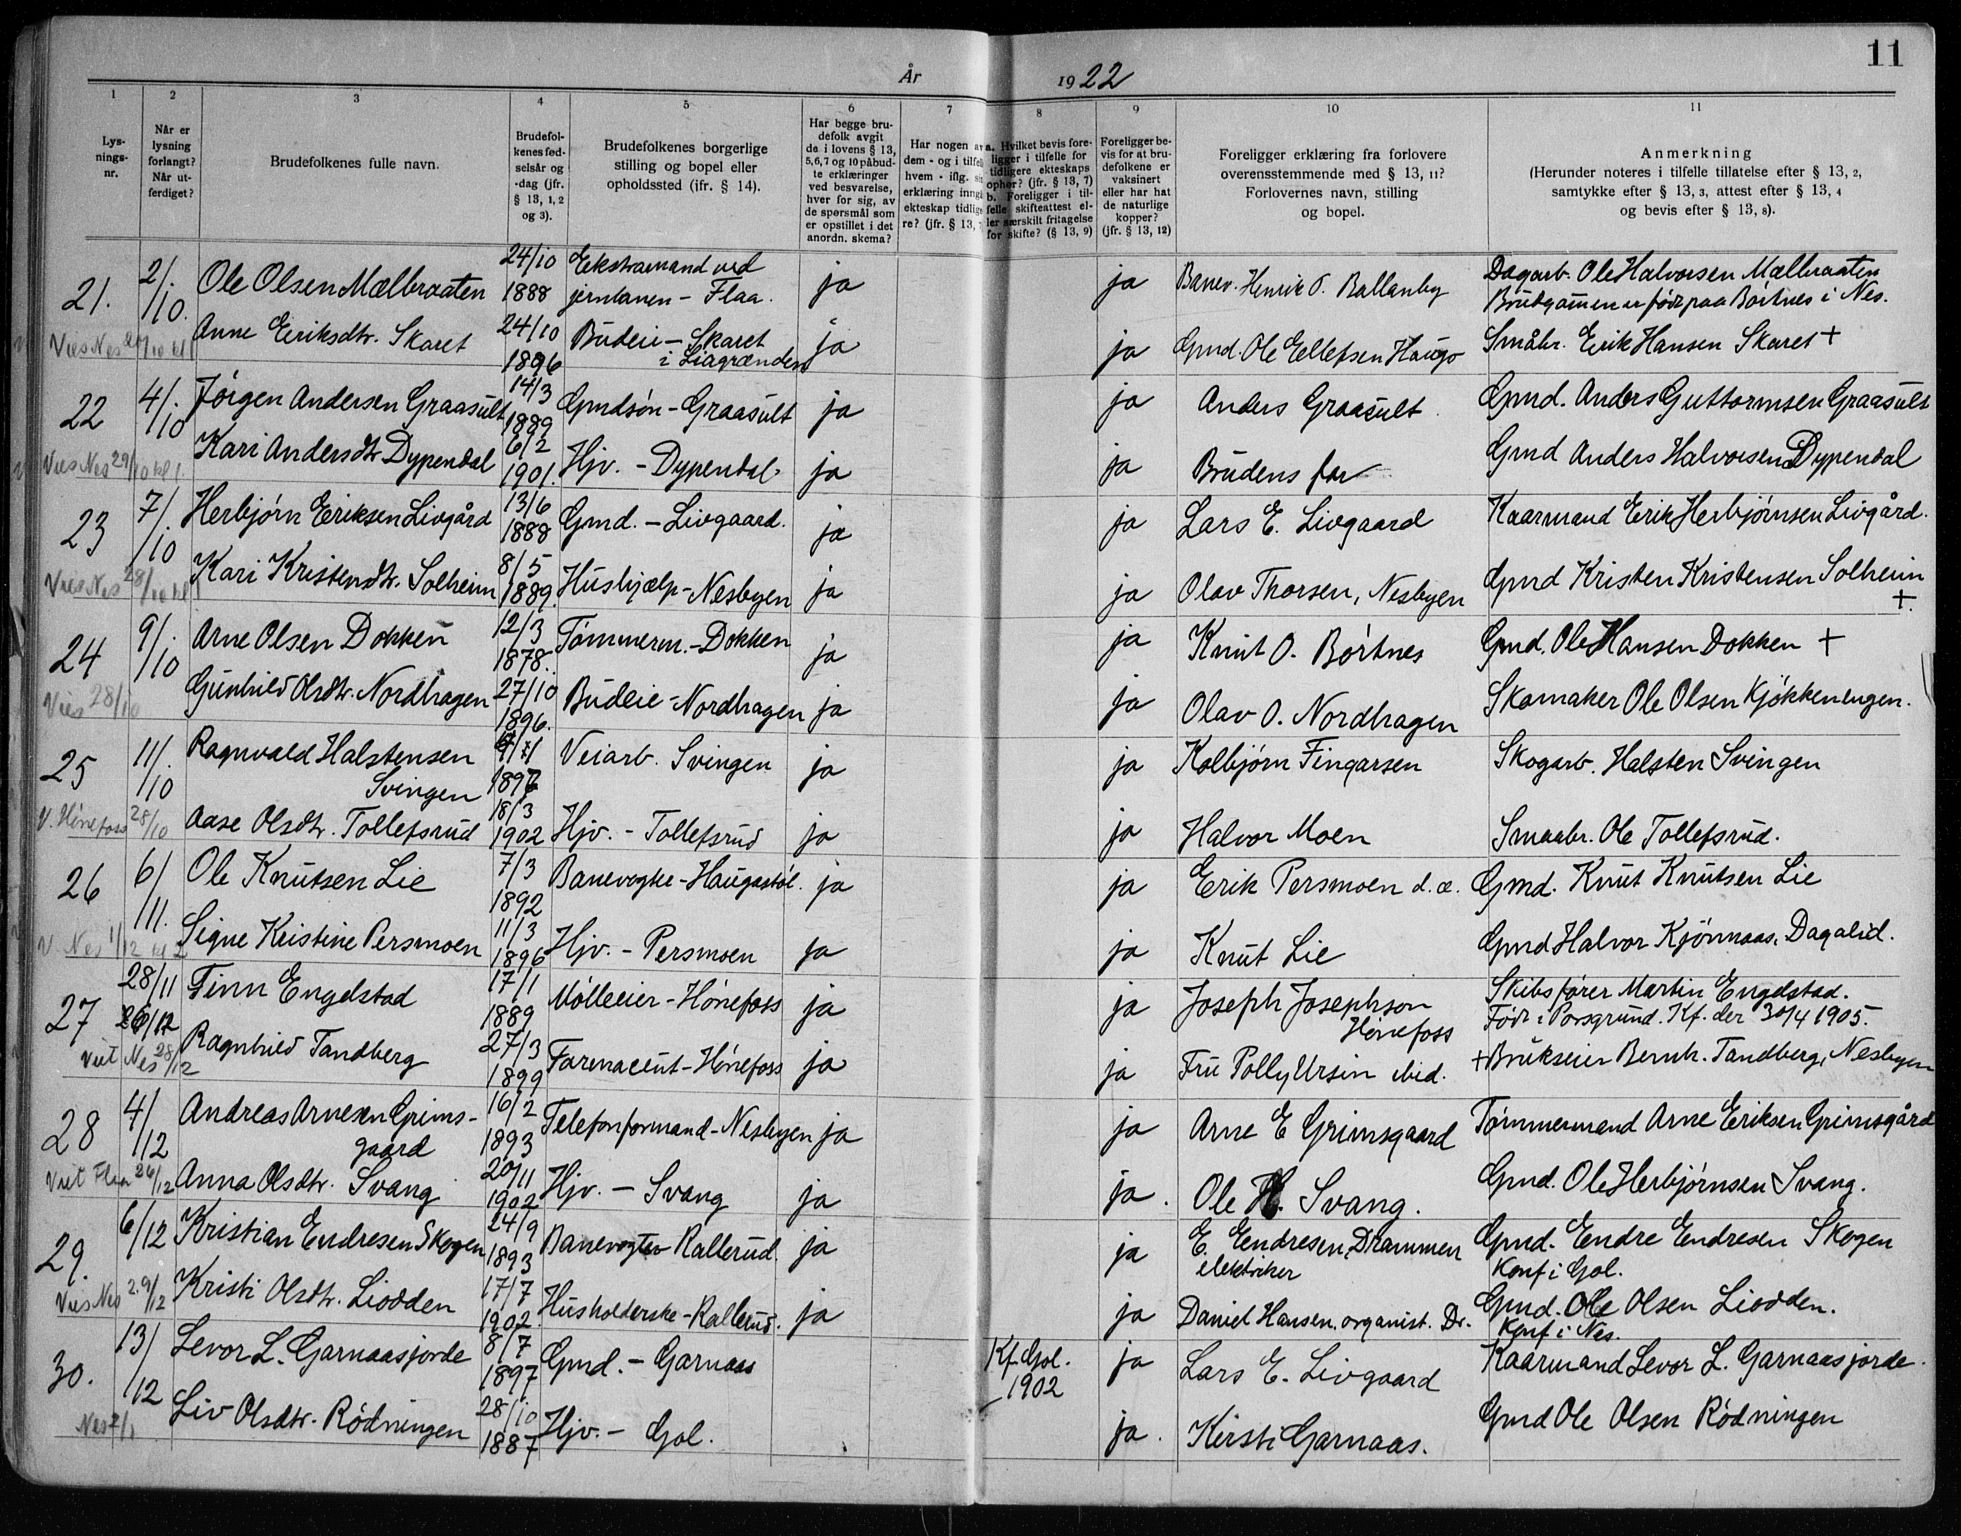 11
År 1922
1 2 3 4 5 6 7 8 9 10 11
Lysningsnr.
Når er lysning forlangt? Når utferdiget?
Brudefolkenes fulle navn.
Brudefolkenes fødselsår og -dag (jfr. § 13, 1, 2 og 3).
Brudefolkenes borgerlige stilling og bopel eller opholdssted (ifr. § 14).
Har begge brudefolk avgit de i lovens § 13, 5,6,7 og 10 påbudte erklæringer ved besvarelse, hver for sig, av de spørsmål som er opstillet i det anordn. skema?
Har nogen av dem - og i tilfelle hvem - iflg. sin erklæring inngå ekteskap tidligere? (jfr. § 13,
a. Hvilket bevis foreligger i tilfelle for tidligere ekteskaps ophør? (jfr. § 13, 7)
b. Foreligger i tilfelle skifteattest eller særskilt fritagelse for skifte? (§ 13, 9)
Foreligger bevis for at brudefolkene er vaksinert eller har hat de naturlige kopper? (jfr. § 13, 12)
Foreligger erklæring fra forlovere overensstemmende med § 13, 11? Forlovernes navn, stilling og bopel.
Anmerkning
(Herunder noteres i tilfelle tillatelse efter § 13, 2, samtykke efter § 13, 3, attest efter § 13, 4 og bevis efter § 13, 8).
21. 2/10. Ole Olsen Mælbraaten 24/10 1888 Ekstramand ved jernbanen - Flaa. ja ja Banev. Henrik O. Ballanby Dagarb. Ole Halvorsen Mælbraaten
Brudgommen er født paa Børtnes i Nes.
Vies Nes /10 kl Anne Eriksdtr. Skaret 24/10 1896 Budeie - Skaret i Liagrænden ja ja Gmd. Ole Ellefsen Haugo Småbr. Erik Hansen Skaret +
22 4/10 Jörgen Andersen Graasult 14/3 1889 Gmdsön - Graasult ja ja Anders Graasult Gmd. Anders Guttormsen Graasult
Vies Nes 29/10 kl 1. Kari Andersdtr Dypendal 6/2 1901. Hjv. - Dypendal. ja ja Brudens far Gmd Anders Halvorsen Dypendal
23 7/10 Herbjörn Eriksen Livgård 13/6 1888 Gmd. - Livgaard. ja ja Lars E. Livgaard Kaarmand Erik Herbjörnsen Livgård.
Vies Nes 28/10 kl Kari Kristendtr. Solheim 8/5 1889. Hushjælp - Nesbyen ja ja Olav Thorsen, Nesbyen Gmd Kristen Kristensen Solheim +.
24 9/10 Arne Olsen Dokken 12/3 1878. Tömmerm. - Dokken ja ja Knut O. Börtnes Gmd. Ole Hansen Dokken +
Vies 28/10 Gunhild Olsdtr. Nordhagen 27/10 1896. Budeie - Nordhagen ja ja Olav O. Nordhagen Skomaker Ole Olsen Kjøkkenengen.
25 11/10 Ragnvald Halstensen Svingen Veiarb. Svingen ja ja Kolbjörn Fingarsen Skogarb. Halsten Svingen
V. Hönefoss 28/10 Aase Olsdtr. Tollefsrud 18/3 1902 Hjv. - Tollefsrud ja ja Halvor Moen Smaabr. Ole Tollefsrud.
26 6/11. Ole Knutsen Lie 7/3 1892 Banevogter - Haugastöl. ja ja Erik Persmoen d. æ. Gmd. Knut Knutsen Lie
V. Nes 1/12 kl Signe Kristine Persmoen 11/3 1896 Hjv. - Persmoen ja ja Knut Lie Gmd Halvor Kjönnaas, Dagalid.
27 28/11 Finn Engelstad 17/1 1889 Mölleeier - Hönefoss ja ja Joseph Josephson Hönefoss Skibsförer Martin Engelstad.
Född i Porsgrund. Kf. der 30/4 1905.
Viet Nes 28/12 Ragnhild Tandberg 27/3 1899 Farmaceut - Hönefoss ja ja Fru Polly Ursin ibid. + Brukseier Bernh. Tandberg, Nesbyen
28 4/12 Andreas Arnesen Grimsgaard 16/2 1893 Telefonformand - Nesbyen ja ja Arne E Grimsgaard Tömmermand Arne Eriksen Grimsgård
Viet Flaa 26/12 Anna Olsdtr. Svang 20/11 1902 Hjv. - Svang ja ja. Ole H. Svang. Gmd. Ole Herbjørnsen Svang.
29. 6/12 Kristian Endresen Skogen 24/9 1893 Banevogter Rallerud. ja ja E. Endresen, Drammen elektriker Gmd. Endre Endresen Skogen
Konf i Gol.
Vies Nes 29/12 Kristi Olsdtr. Liodden 17/7 1902. Husholderske - Rallerud. ja ja Daniel Hansen, organist. Dr. Gmd. Ole Olsen Liodden.
Konf i Nes.
30. 13/12 Levor L. Garnaasjorde 8/7 1897 Gmd. - Garnaas Kf. Gol. 1902 ja Lars E. Livgaard Kaarmand Levor L. Garnaasjorde.
Nes Liv Olsdtr. Rödningen 28/10 1887 Hjv. - Gol. ja. Kirsti Garnaas. Gmd Ole Olsen Rödningen